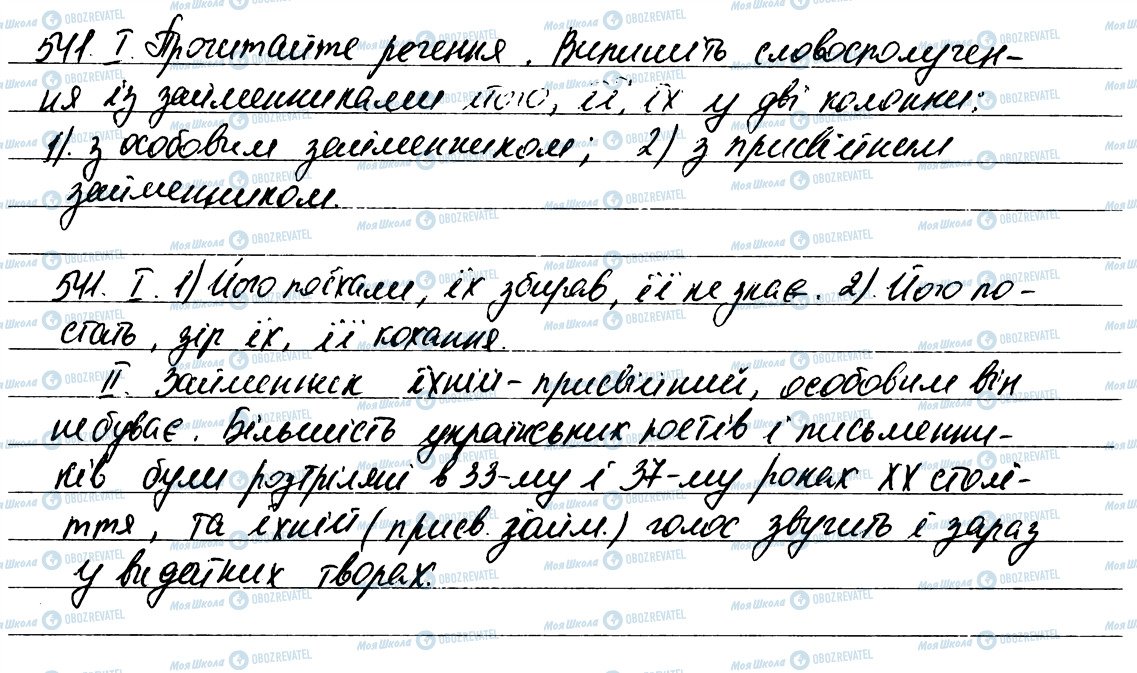 541. I. Прочитайте речення. Випишіть словосполучен-
ня із займенниками його, її, їх у дві колонки:
1). з особовим займенником; 2) з присвійним
займенником.
541. I. 1) Його поїхали, їх збирав, її не знає. 2). Його по-
стать, зір їх, її кохання.
II. Займенник їхній - присвійний, особовим він
не буває. Більшість українських поетів і письменни-
ків були розтріляні в 33-му і 37-му роках XX столі-
ття, та їхній (присв. займ.) голос звучить і зараз
у видатних творах.